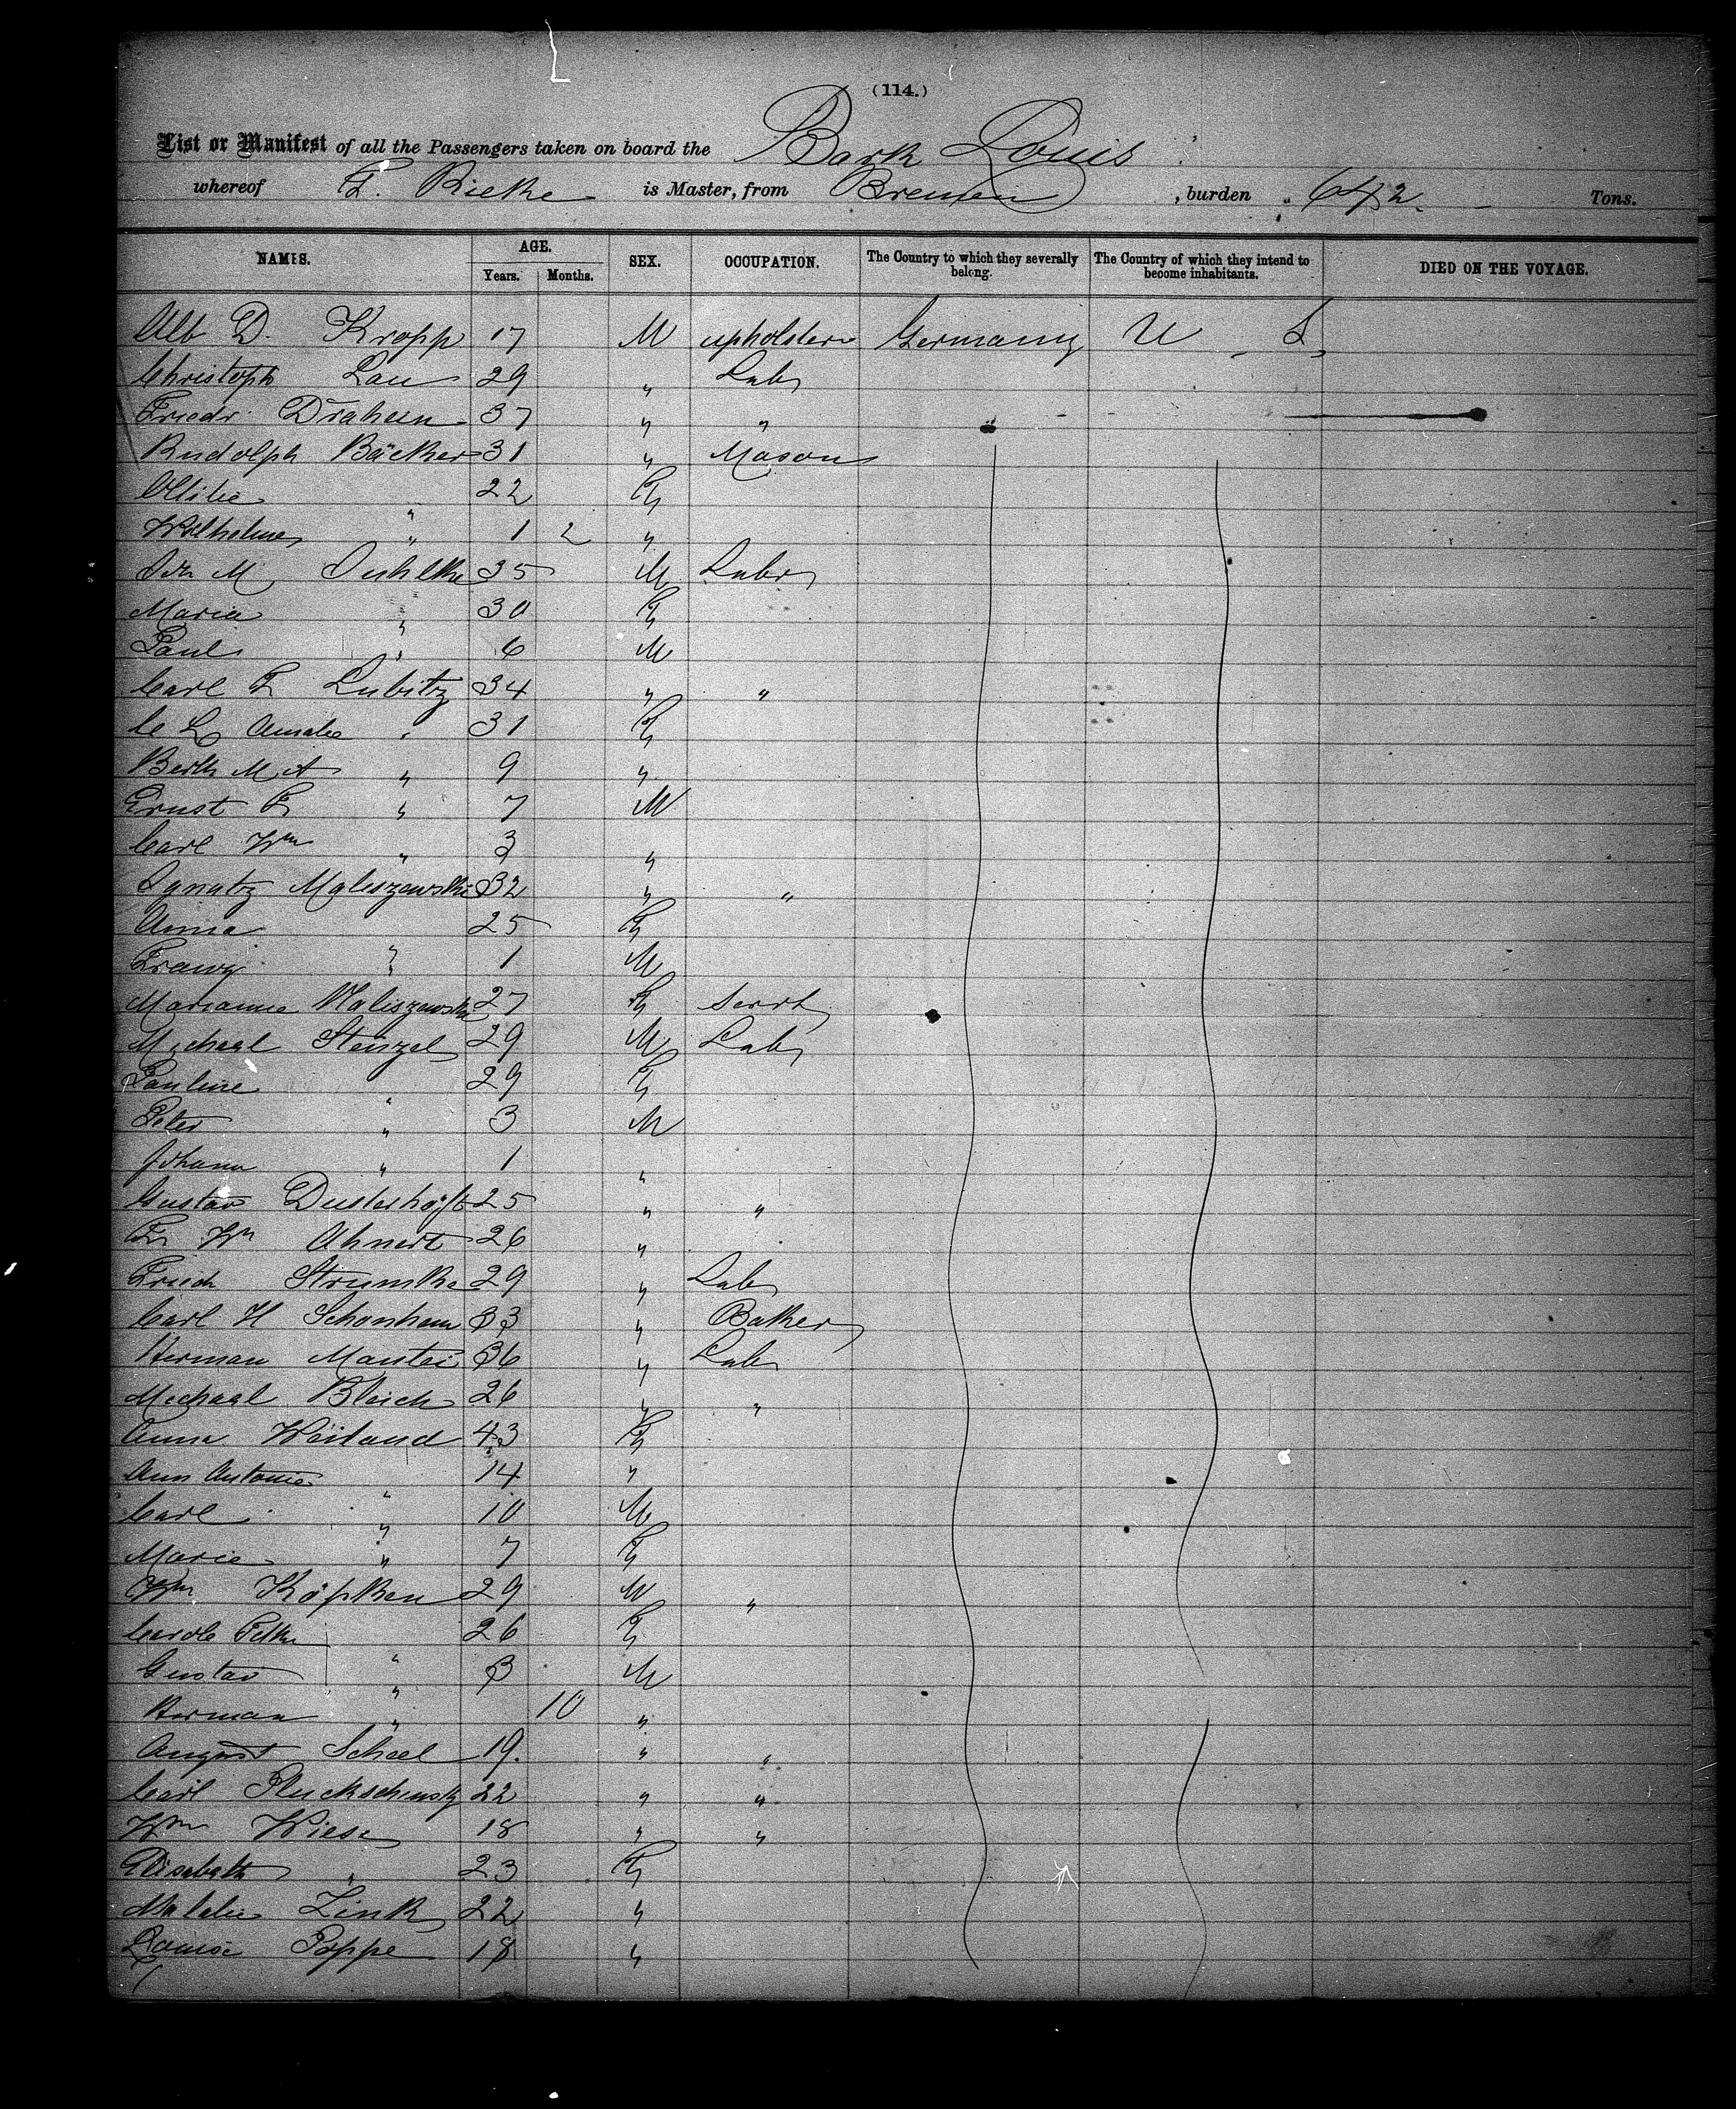 (114.)
List or Manifest of all the Passengers taken on board the Bark Louis
whereof F. Rieke is Master, from Bremen, burden 642 Tons.
NAMES. AGE. SEX. OCCUPATION. The Country to which they severally belong. The Country of which they intend to become inhabitants. DIED ON THE VOYAGE.
Years. Months.
Alb D. Kropp 17 M upholsterer Germany U S
Christoph Lau 29 " Labr
Friedr. Draheim 37 " "
Rudolph Bäcker 31 " Mason
Ottilie " 22 F
Wilhelmine " 1 2 "
Joh M. 35 M Labr
Maria " 30 F
Paul " 6 M
Carl F Lubitz 34 " "
C L Amalie " 31 F
Berth M A " 9 "
Ernst F " 7 M
Carl Wm " 3 "
Ignatz Maliszewski 32 " "
Anna 25 F
Franz " 1 M
Marianne Maliszewski 27 F Servt
Michael Stenzel 29 M Labr
Pauline " 29 F
Peter " 3 M
Johann " 1 "
Gustav Dusterhöft 25 " "
Fr Wm Ahnert 26 "
Friedr Strumske 29 " Labr
Carl H Schonheim 33 " Bakker
Herman Mantei 36 " Labr
Michael Bleich 26 " "
Anna Weiland 43 F
Ann Antonie " 14 "
Carl " 10 M
Marie " 7 F
Wm Köpken 29 M "
" 26 F
Gustav " 3 M
Herman " 10 "
August Scheel 19. " "
Carl 22 " "
Wm Wiese 18 " "
Elisabeth " 23 F
Link 22 "
Louise Poppe 18 "